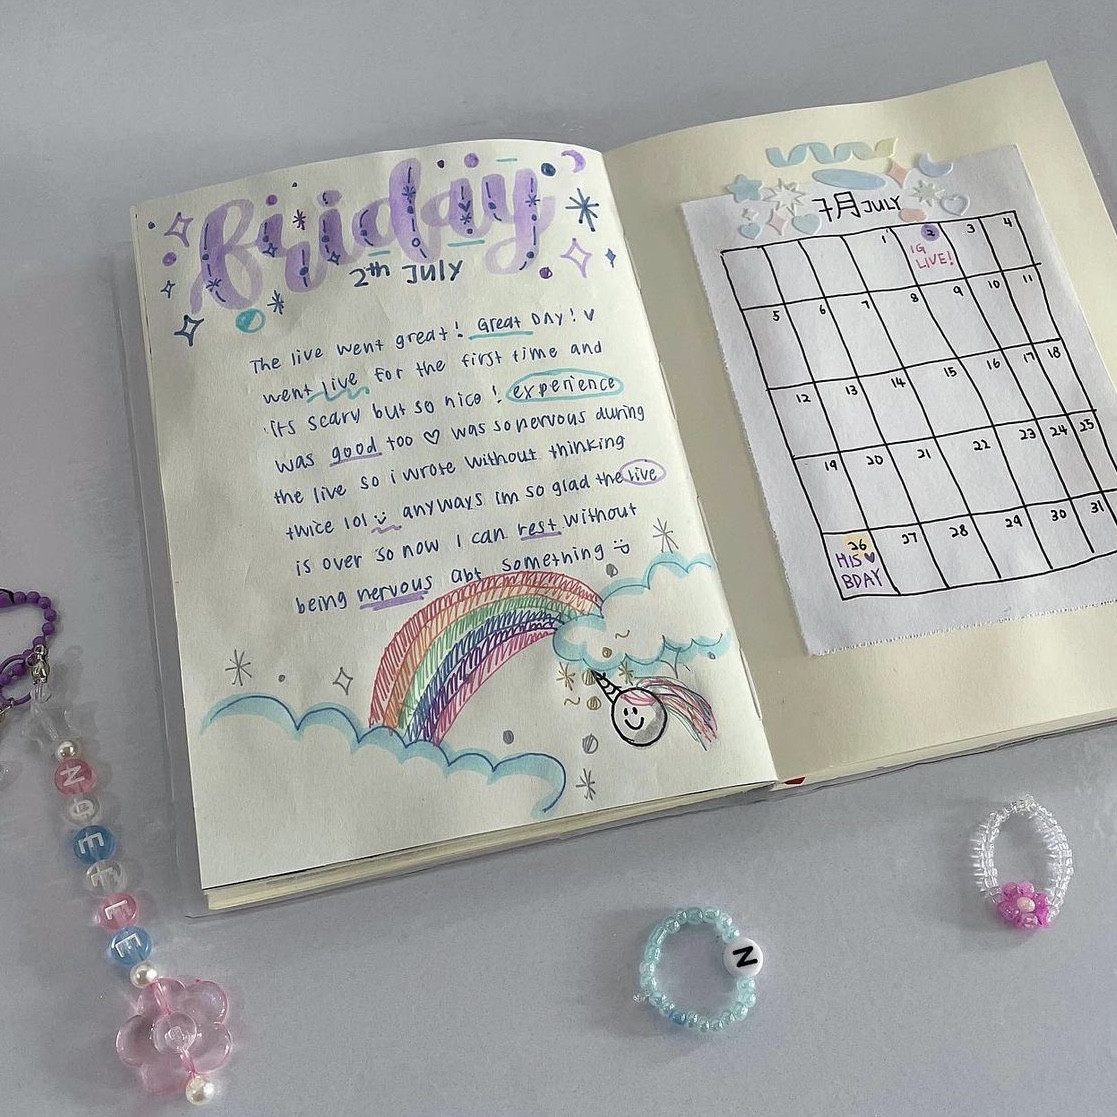 friday
2th JULY
The live went great! Great DAY! ♥
went live for the first time and
its scary but so nice! experience
was good too ♡ was so nervous during
the live so i wrote without thinking
twice lol :) anyways im so glad the live
is over so now I can rest without
being nervous abt something :)
7月 JULY
1 2 3 4
IG
LIVE!
5 6 7 8 9 10 11
12 13 14 15 16 17 18
19 20 21 22 23 24 25
26 27 28 29 30 31
HIS ♥
BDAY
NOELLE
N